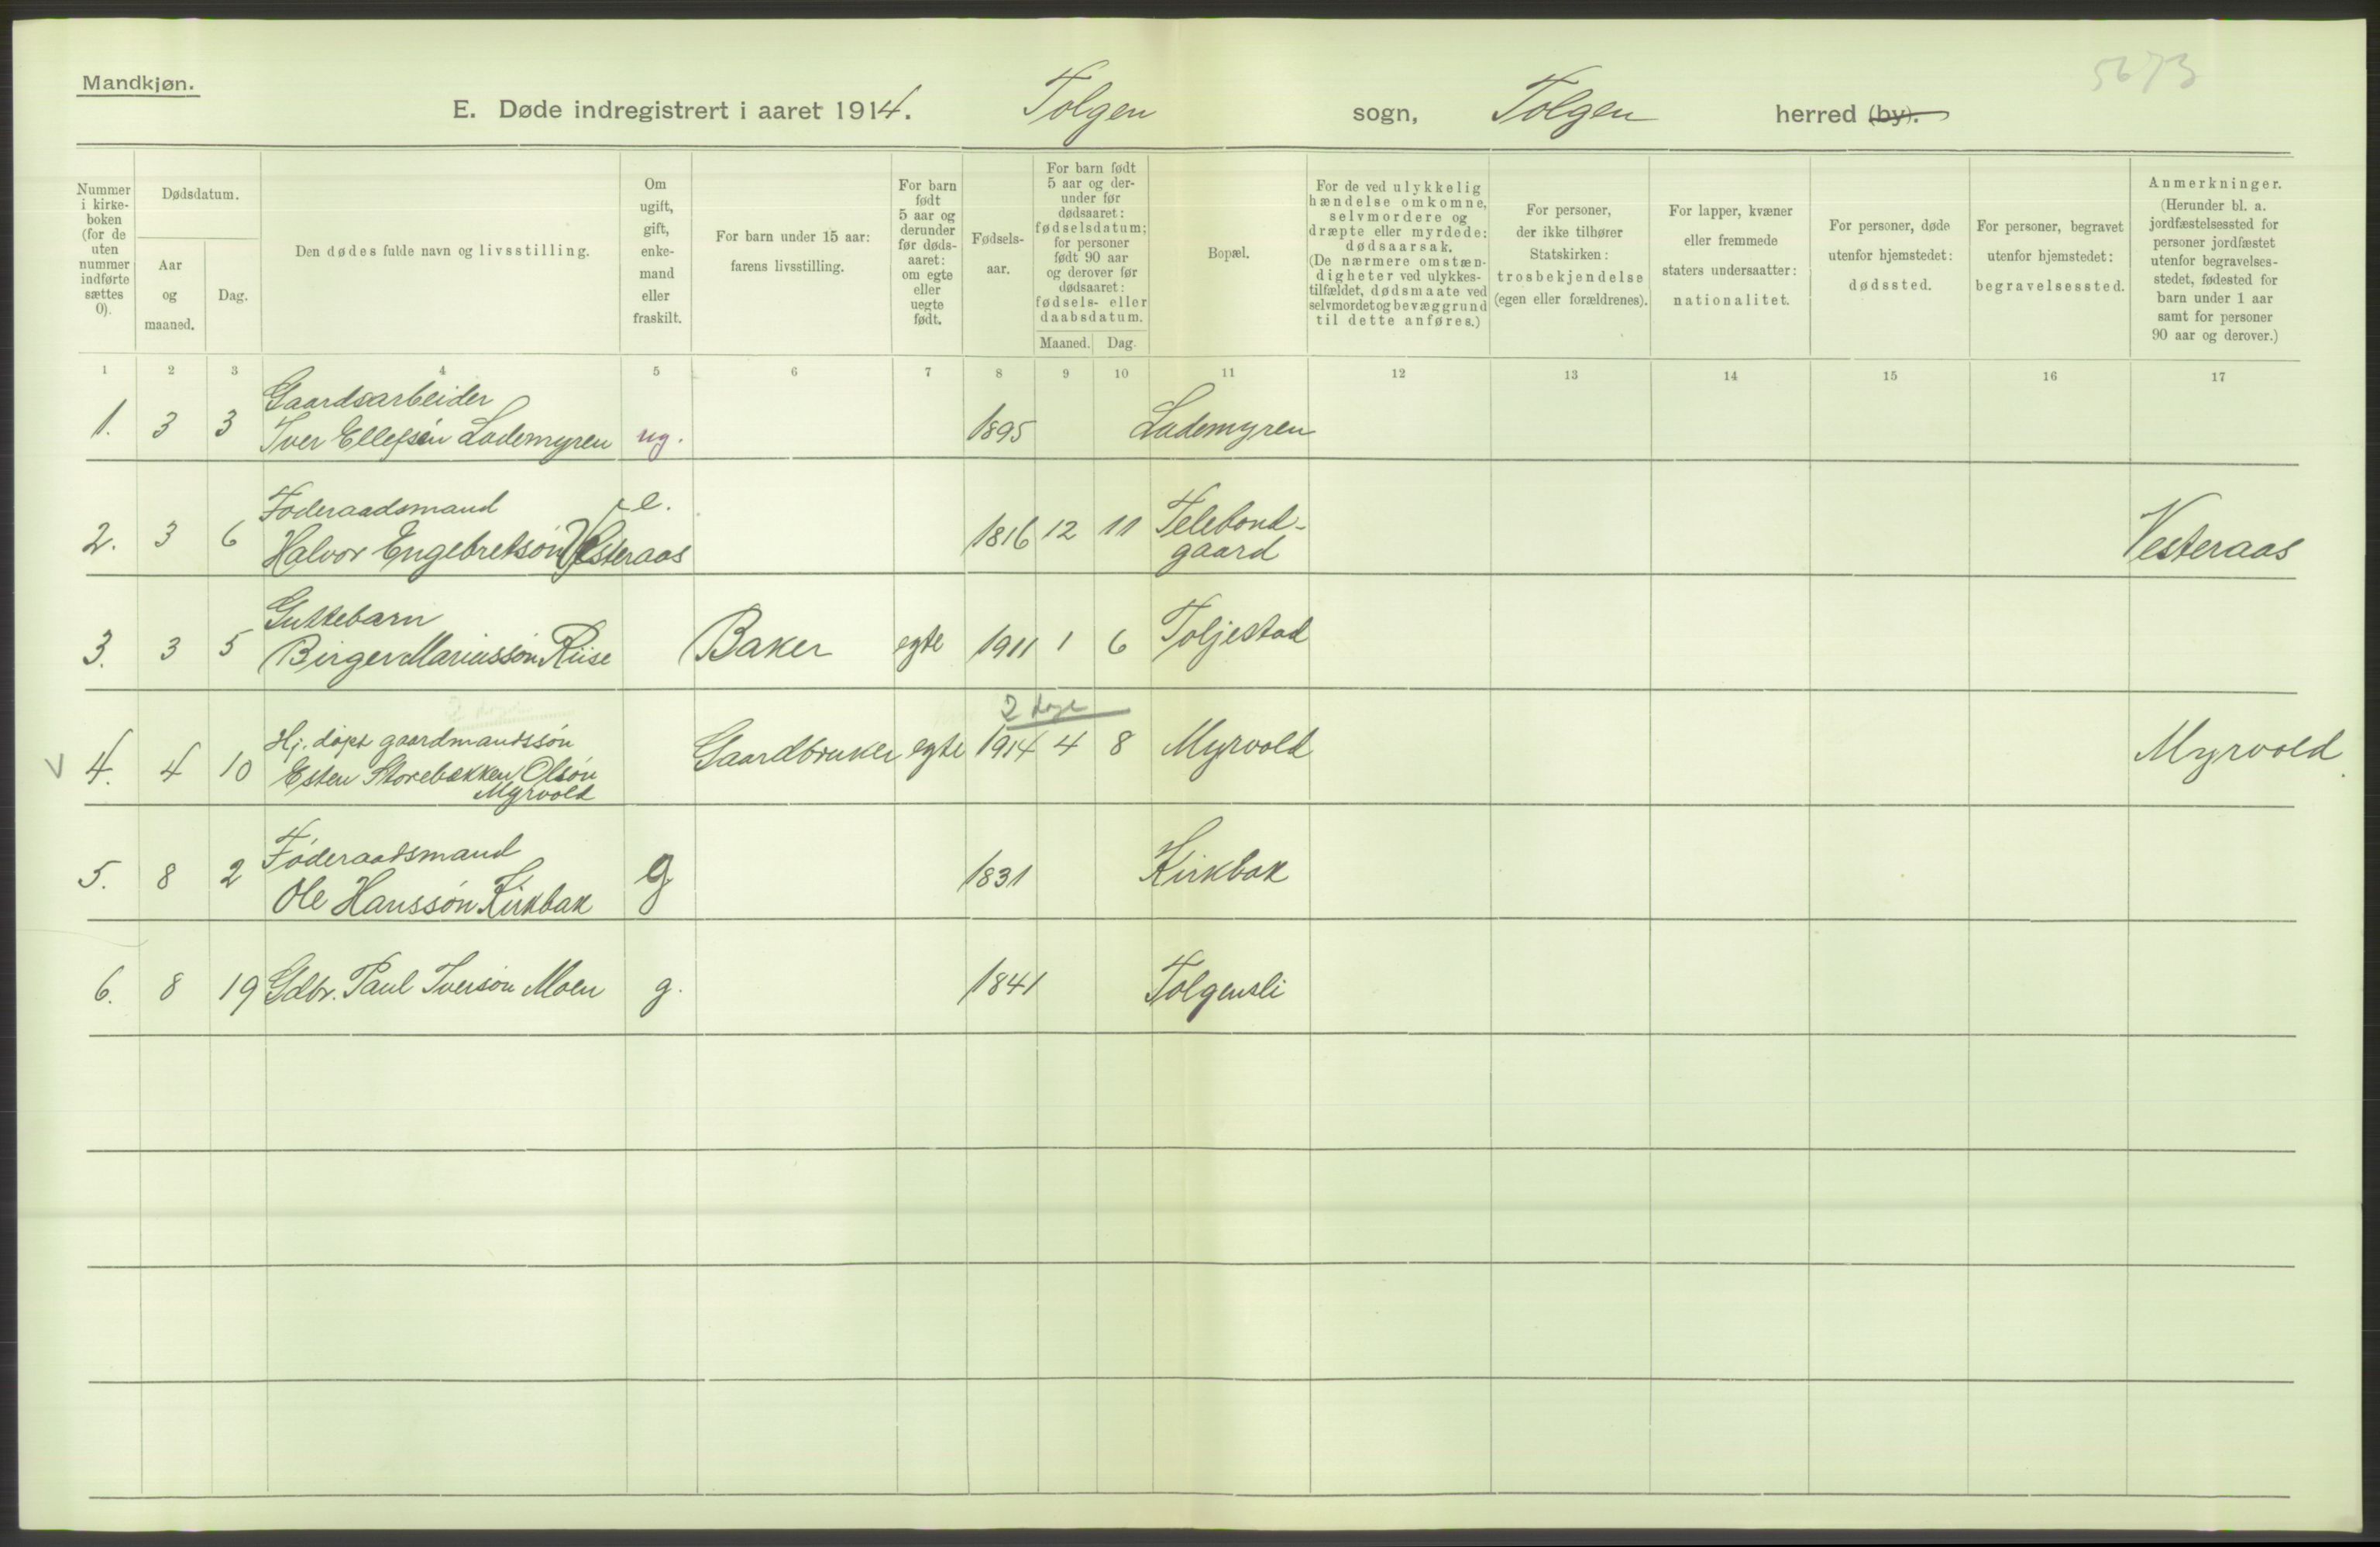 Mandkjøn.
5673
E. Døde indregistrert i aaret 1914. Tolgen sogn, Tolgen herred (by).
Nummer i kirke-boken (for de uten nummer indførte sættes 0).
Dødsdatum.
Aar og maaned.
Dag.
Den dødes fulde navn og livsstilling.
Om ugift, gift, enke-mand eller fraskilt.
For barn under 15 aar: farens livsstilling.
For barn født 5 aar og derunder før døds-aaret: om egte eller uegte født.
Fødsels-aar.
For barn født 5 aar og der-under før dødsaaret: fødselsdatum; for personer født 90 aar og derover før dødsaaret: fødsels- eller daabsdatum.
Maaned. Dag.
Bopæl.
For de ved ulykkelig hændelse omkomne, selvmordere og dræpte eller myrdede: dødsaarsak. (De nærmere omstæn-digheter ved ulykkes-tilfældet, dødsmaate ved selvmordet og bevæggrund til dette anføres.)
For personer, der ikke tilhører Statskirken: trosbekjendelse (egen eller forældrenes).
For lapper, kvæner eller fremmede staters undersaatter: nationalitet.
For personer, døde utenfor hjemstedet: dødssted.
For personer, begravet utenfor hjemstedet: begravelsessted.
Anmerkninger. (Herunder bl. a. jordfæstelsessted for personer jordfæstet utenfor begravelses-stedet, fødested for barn under 1 aar samt for personer 90 aar og derover.)
1 2 3 4 5 6 7 8 9 10 11 12 13 14 15 16 17
Gaardsarbeider
1. 3 3 Iver Ellefsen Lademyren ug. 1895 Lademyren
Føderaadsmand e. Telebond-
2. 3 6 Halvor Engebretsøn Vesteraas 1816 12 11 gaard Vesteraas
Guttebarn
3. 3 5 Birger Mariussøn Riise Baker egte 1911 1 6 Toljestad
2 dage
Hj. døpt gaardmandssøn
V 4. 4 10 Esten Storebækken Olsøn Gaardbruker egte 1914 4 8 Myrvold Myrvold
Myrvold
Føderaadsmand
5. 8 2 Ole Hanssøn Kirkbak g 1831 Kirkbak
6. 8 19 Gdbr. Paul Iversøn Moen g. 1841 Tolgensli